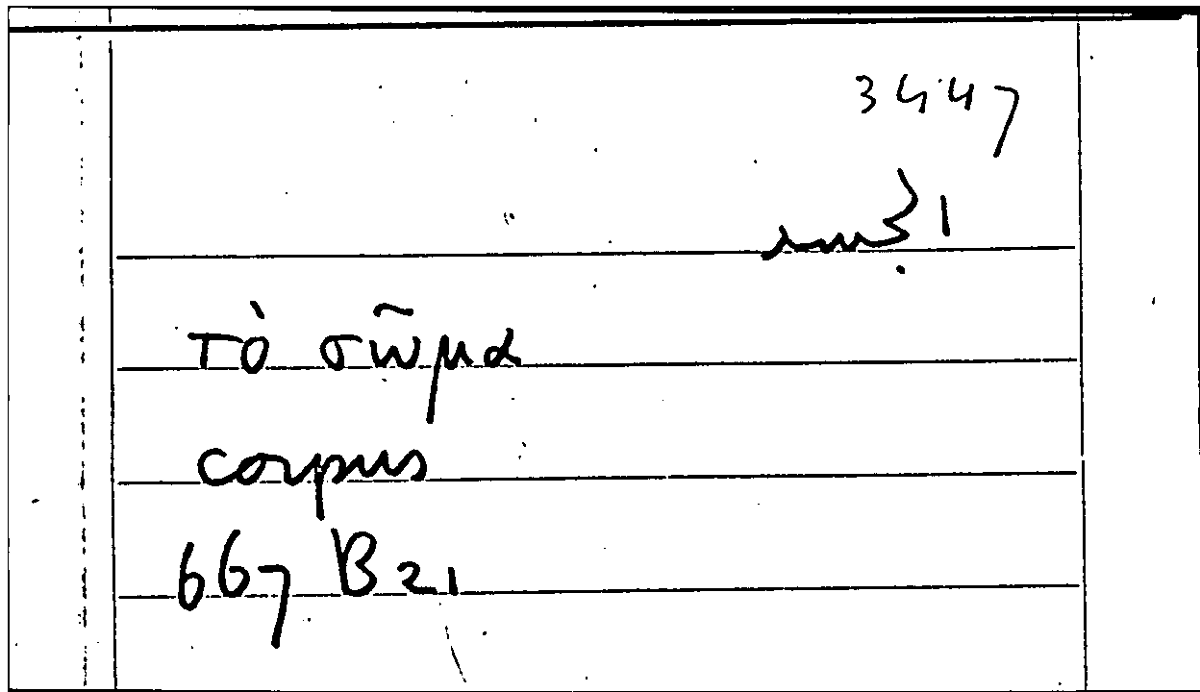 3447
الجسم
τὸ σῶμα
corpus
667 B 21